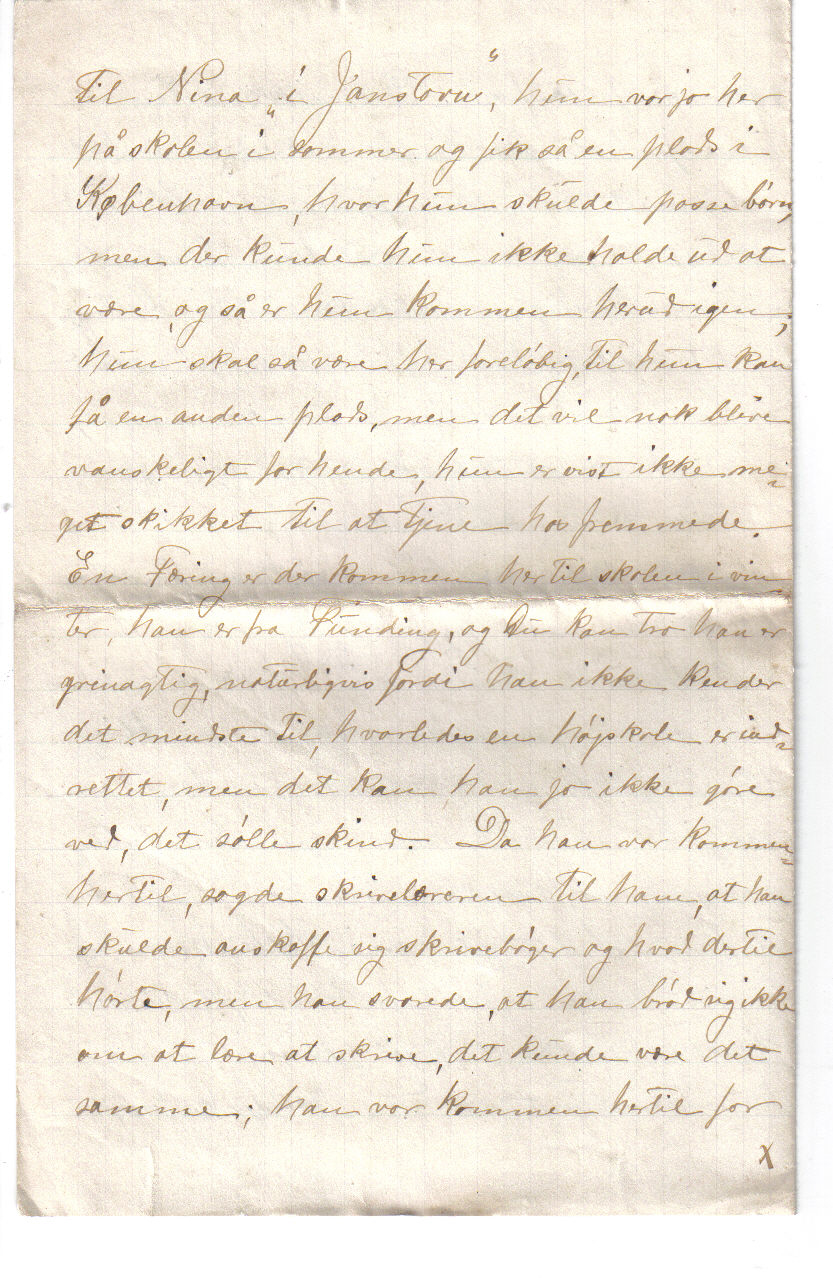 til Nina „i Janstovu“, hun var jo her
på skolen i sommer og fik så en plads i
København, hvor hun skulde passe børn,
men der kunde hun ikke holde ud at
være, og så er hun kommen herud igen,
hun skal så være her foreløbig, til hun kan
få en anden plads, men det vil nok blive
vanskeligt for hende, hun er vist ikke me-
get skikket til at tjene hos fremmede.
En Færing er der kommen her til skolen i vin-
ter, han er fra Funding, og Du kan tro han er
grinagtig, naturligvis fordi han ikke kender
det mindste til, hvorledes en højskole er ind-
rettet, men det kan han jo ikke gøre
ved, det sølle skind. Da han var kommen
hertil, sagde skrivelæreren til ham, at han
skulde anskaffe sig skrivebøger og hvad dertil
hørte, men han svarede, at han brød sig ikke
om at lære at skrive, det kunde være det
samme; han var kommen hertil for
x